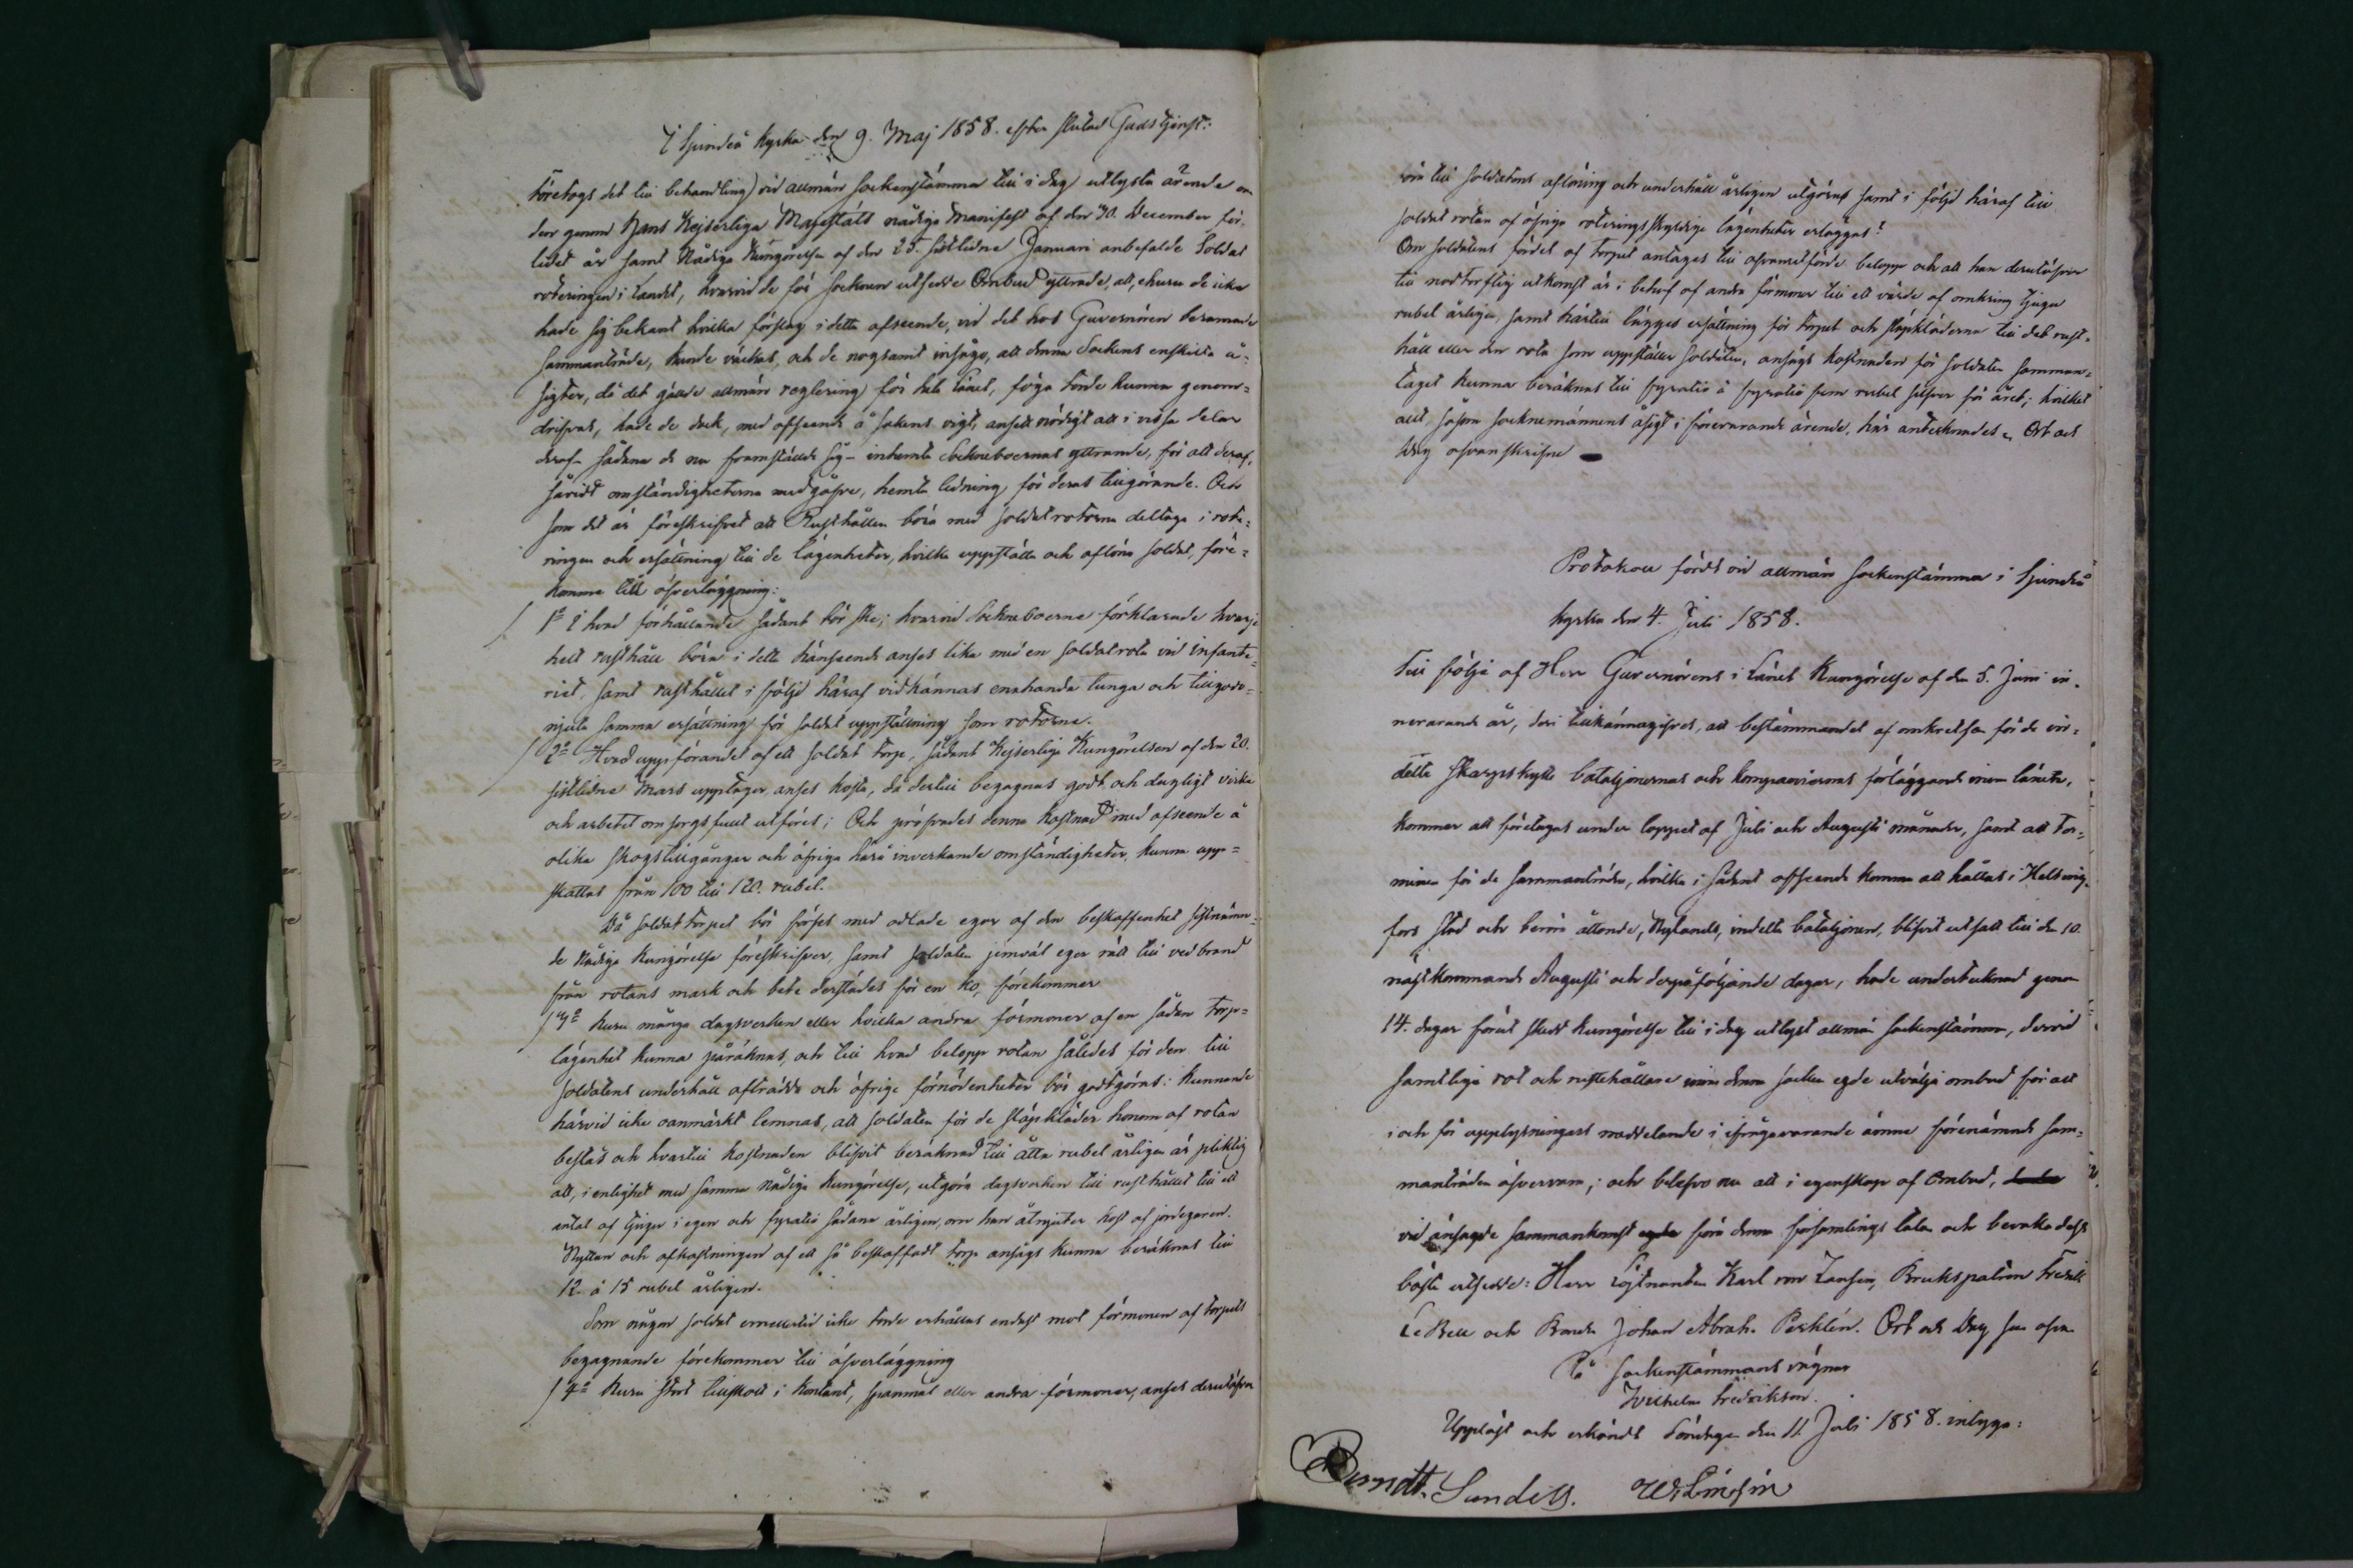 I Sjundeå kyrka den 9. Maj 1858. efter slutad Gudstjenst:
Företogs det till behandling vid allmän sockenstämma till i dag utlysta ärende om
den genom Hans Kejserliga Majestäts nådiga Manifest af den 30. December för-
lidet år samt Nådiga Kungörelse af den 25. sistlidne Januari anbefalde Soldat
roteringen i landet, hvarvid de för socknen utsedde Ombud yttrade, att, ehuru de icke
hade sig bekant hvilka förslag i detta afseende, vid det hos Guvernören beramade
sammanträde, kunde väckas, och de nogsamt insågo, att denna Sockens enskilta å-
sigter, då det gällde allmän reglering för hela Länet, föga torde kunna genom-
drifvas, hade de dock, med afseende å sakens vigt, ansett nödigt att i vissa delar
deraf - sådana de nu framställde sig - inhemta Sockneboernas yttrande, för att deraf,
såvidt omständigheterna medgåfve, hemta ledning för deras tillgörande. Och
som det är föreskrifvet att Rusthållen böra med soldatrotorna deltaga i rote-
ringen och ersättning till de lägenheter, hvilka uppställa och aflöna soldat, före-
komme till öfverläggning:
1º I hvad förhållande sådant bör ske; hvarvid Sockneboerne förklarade hvarje
helt rusthåll böra i detta hänseende anses lika med en soldatrota vid infante-
riet, samt rusthållet i följd häraf vidkännas enahanda tunga och tillgodo-
njuta samma ersättning för soldat uppställning som rotorne.
2º Hvad uppförandet af ett soldat torp, sådant Kejserliga Kungörelsen af den 20.
sistlidne Mars upptager, anses kosta, då dertill begagnas godt och dugligt virke
och arbetet omsorgsfullt utföres; Och pröfvades denna kostnad med afseende å
olika skogstillgångar och öfriga härå inverkande omständigheter, kunna upp-
skattas från 100 till 120. rubel.
Då soldat torpet bör förses med odlade egor af den beskaffenhet sistnämn-
de Nådiga Kungörelse föreskrifver, samt soldaten jemväl eger rätt till vedbrand
från rotans mark och bete derstädes för en ko, förekommer
3º Huru många dagsverken eller hvilka andra förmoner af en sådan torp-
lägenhet kunna påräknas, och till hvad belopp rotan således för den till
soldatens underhåll afträdde och öfrige förnödenheter bör godtgöras: kunnande
härvid icke oanmärkt lemnas, att soldaten för de släpkläder honom af rotan
bestås och hvartill kostnaden blifvit beräknad till åtta rubel årligen är pliktig
att, i enlighet med samma Nådiga Kungörelse, utgöra dagsverken till rusthållet till ett
antal af tjugu i egen och fyratio sådana årligen, om han åtnjuter kost af jordegaren.
Nyttan och afkastningen af ett så beskaffadt torp ansågs kunna beräknas till
12 à 15 rubel årligen.
Som någon soldat emellertid icke torde erhållas endast mot förmonen af torpets
begagnande förekommer till öfverläggning
4º Huru stort tillskott i kontant, spannmål eller andra förmoner, anses derutöfver
böra till soldatens aflöning och underhåll årligen utgöras samt i följd häraf till
soldat rotan af öfriga roteringsskyldige lägenheter erläggas?
Om soldatens fördel af torpet antages till ofvannämnde belopp och att han derutöfver
till nödtorftig utkomst är i behof af andra förmoner till ett värde af omkring tjugu
rubel årligen, samt härtill lägges ersättning för torpet och släpkläderna till det rust-
håll eller den rota som uppställer soldaten, ansågs kostnaden för soldaten samman-
taget kunna beräknas till fyratio à fyratio fem rubel silfver för året; hvilket
allt, såsom socknemännens åsigt i förevarande ärende, här antecknades. Ort och
dag ofvanskrifne
Protokoll fördt vid allmän sockenstämma i Sjundeå
kyrka den 4. Juli 1858.
Till följe af Herr Guvernörens i Länet Kungörelse af den 5. Juni in-
nevarande år, deri tillkännagifves, att bestämmandet af omkretsen för de in-
delta Skarpskytte bataljonernas och kompaniernas förläggande inom länen,
kommer att företagas under loppet af Juli och Augusti månader, samt att ter-
minen för de sammanträden, hvilka i sådant afseende komma att hållas i Helsing-
fors stad och beröra åttonde, Nylands, indelta bataljonen, blifvit utsatt till den 10.
nästkommande Augusti och derpåföljande dagar, hade undertecknad genom
14. dagar förut skedd kungörelse till i dag utlyst allmän sockenstämma, dervid
samtliga rot och rusthållare inom denna socken egde utvälja ombud för att
i och för upplysningars meddelande i ifrågavarande ämne förenämnde sam-
manträden öfvervara; och blefvo nu att i egenskap af Ombud,
vid ansagde sammankomst föra denna församlings talan och bevaka dess
bästa utsedde: Herr Löjtnanten Karl von Zansen, Brukspatron Fredrik
Le Bell och Bonden Johan Abrah. Perklén. Ort och dag som ofvan
På Sockenstämmans vägnar
Wilhelm Fredrikson.
Uppläst och erkändt Söndagen den 11. Juli 1858. intyga:
Berndt Sundell. W. Linsén